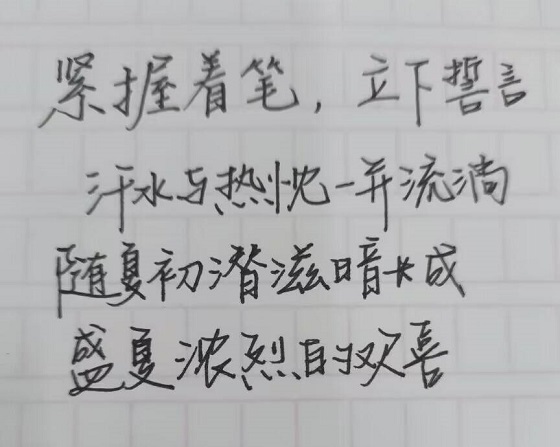 紧握着笔，立下誓言
汗水与热忱一并流淌
随夏初潜滋暗长成
盛夏浓烈的欢喜